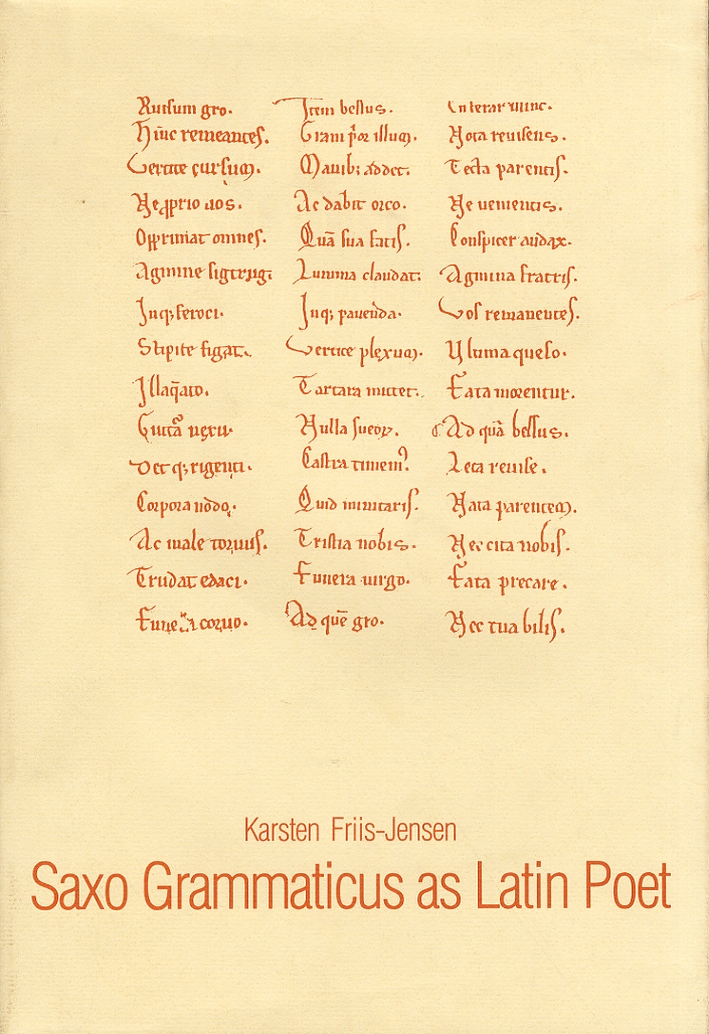 Rursum gro.
Hīnc remeantes.
Vertite cursum.
Ne ꝓprio uos.
Opprimat omnes.
Agmine sigtrug.
Inqꝫ feroci.
Stipite figat.
Illaq̄ato.
Guttᵃ nexu.
Det qꝫ rigenti.
Corpora nodo.
Ac male toruus.
Trudat edaci.
Funera coruo.
Item bessus.
Gram p̄or illum.
Manibꝫ addet.
Ac dabit orco.
Quā sua fatis.
Lumina claudat.
Inqꝫ pauenda.
Vertice plexum.
Tartara mittet.
Nulla sueoꝝ.
Castra timemꝰ.
Quid minitaris.
Tristia nobis.
Funera uirgo.
Ad quē gro.
nunc.
Nota reuisens.
Tecta parentis.
Ne uenientis.
Conspicer audax.
Agmina fratris.
Vos remanentes.
Vltima queso.
Fata morentur.
Ad quā bessus.
Leta reuise.
Nata parentem.
Nec cita nobis.
Fata precare.
Nec tua bilis.
Karsten Friis-Jensen
Saxo Grammaticus as Latin Poet